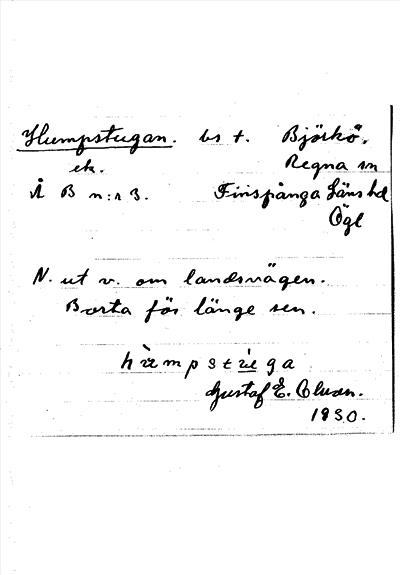 Humpstugan. bs t. Björkö,
ek. Regna sn
Å B n:r 3. Finspånga Läns hd
Ögl
N. ut v. om landsvägen.
Borta för länge sen.
hùmpstùga
Gustaf E. Olsson.
1930.